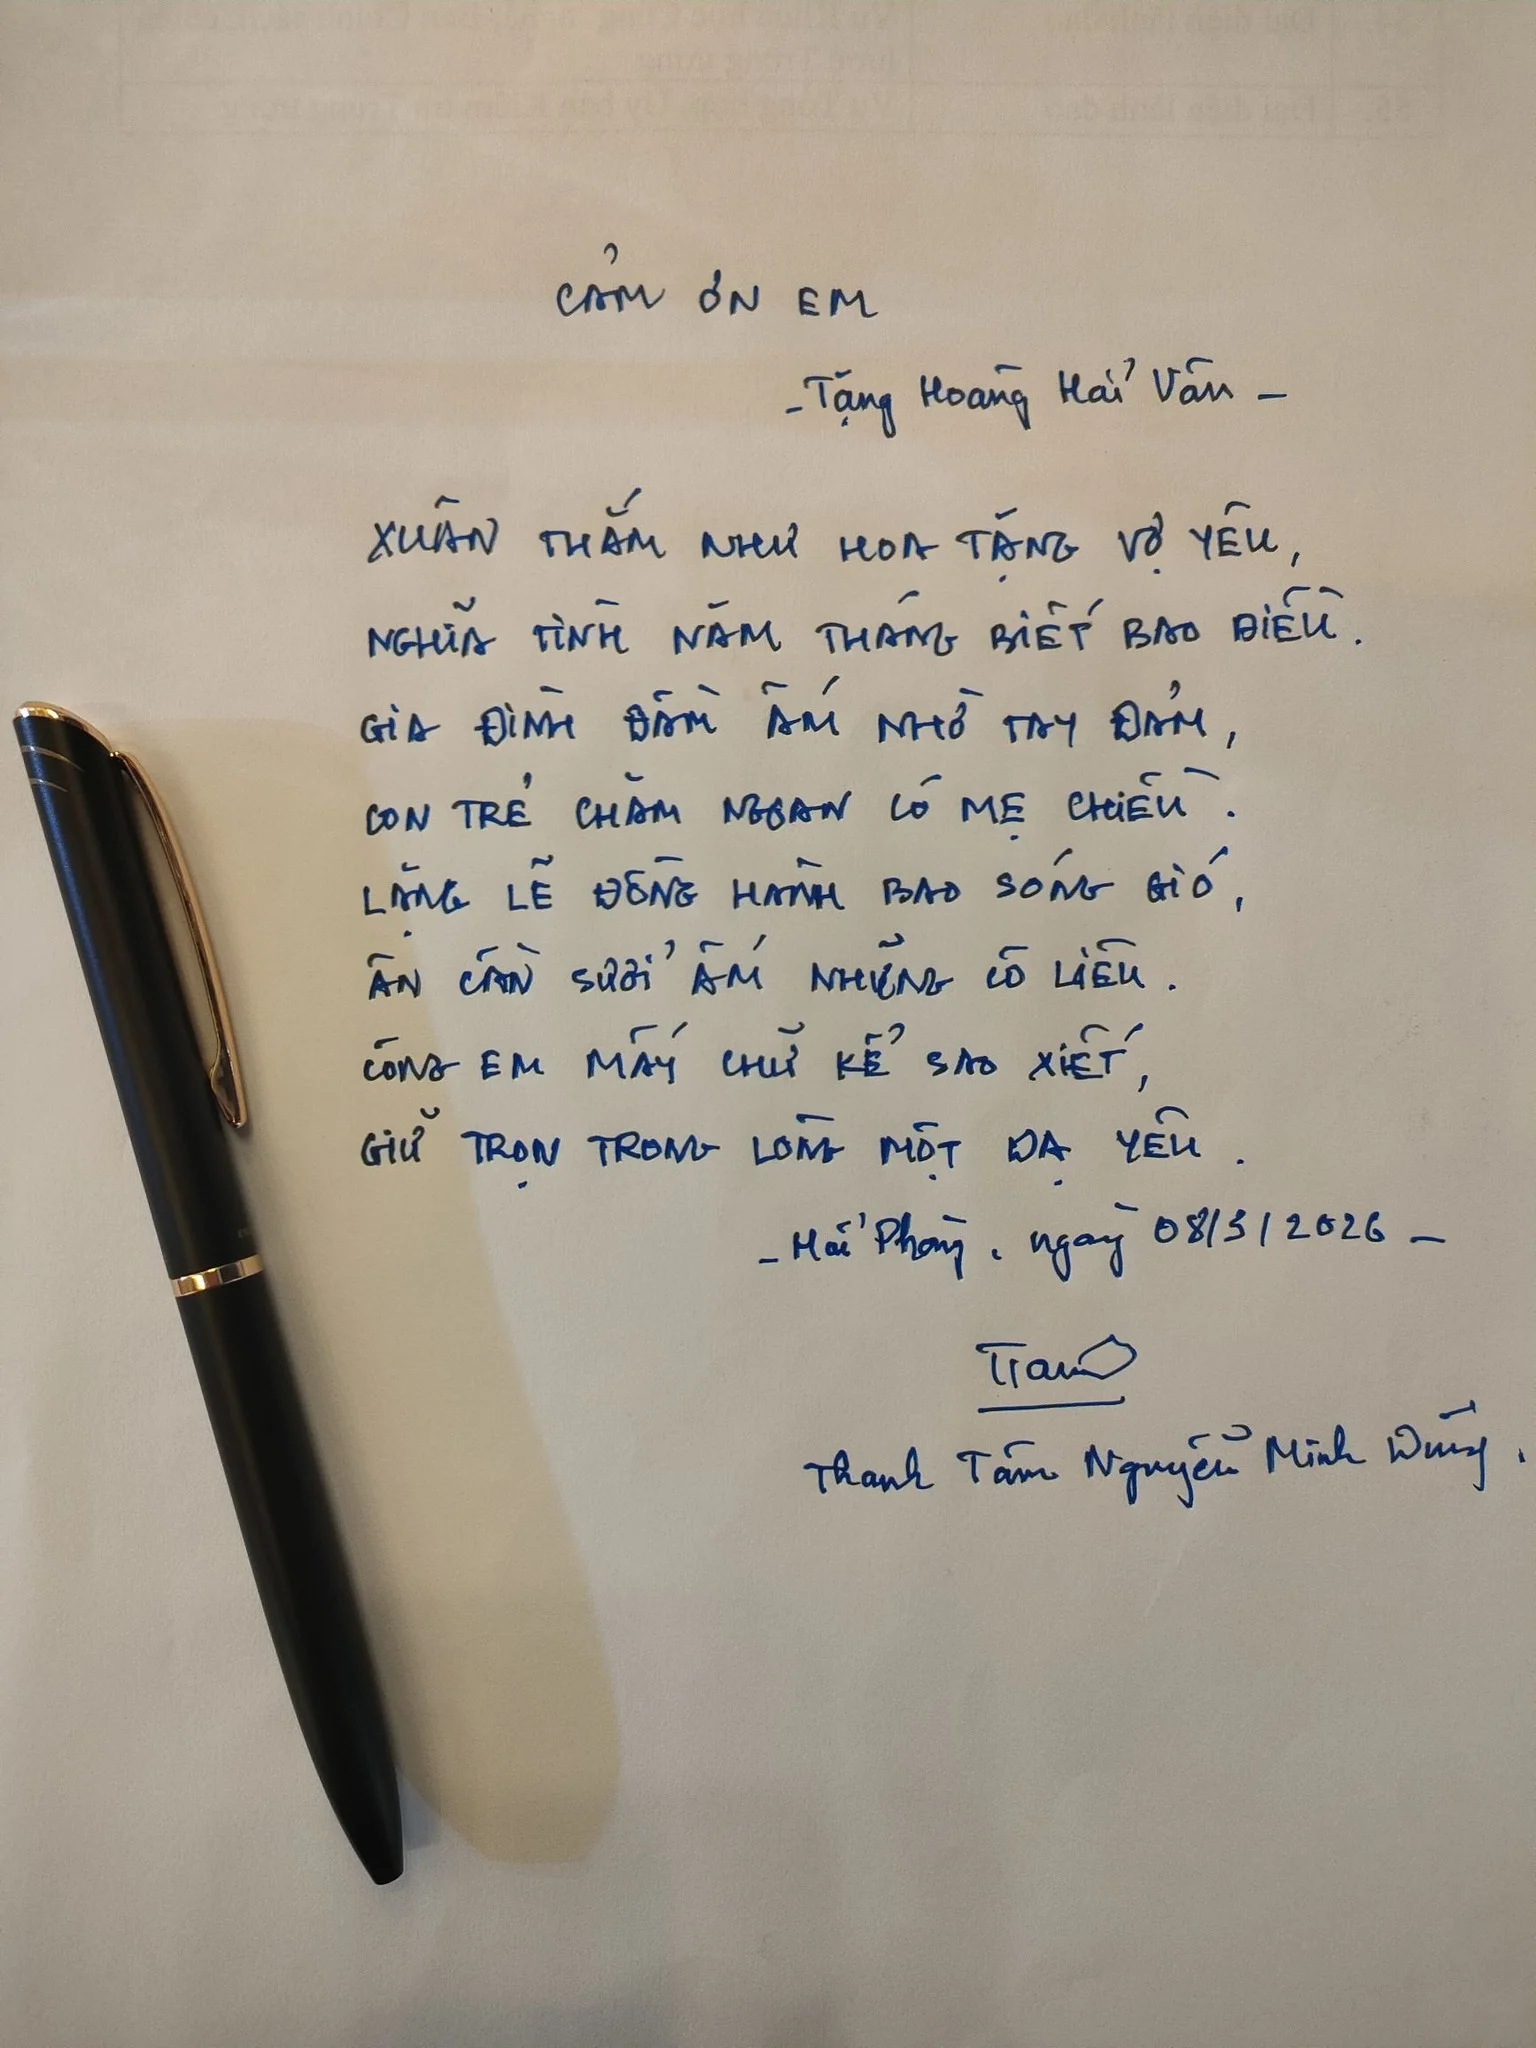 CẢM ƠN EM
- Tặng Hoàng Hải Vân -
XUÂN THẮM NHƯ HOA TẶNG VỢ YÊU,
NGHĨA TÌNH NĂM THÁNG BIẾT BAO ĐIỀU.
GIA ĐÌNH ĐẦM ẤM NHỜ TAY ĐẢM,
CON TRẺ CHĂM NGOAN CÓ MẸ CHIỀU.
LẶNG LẼ ĐỒNG HÀNH BAO SÓNG GIÓ,
ÂN CẦN SƯỞI ẤM NHỮNG CÔ LIÊU.
CÔNG EM MẤY CHỮ KỂ SAO XIẾT,
GIỮ TRỌN TRONG LÒNG MỘT DẠ YÊU.
- Hải Phòng, ngày 08/3/2026 -
Thanh Tâm Nguyễn Minh Dũng.